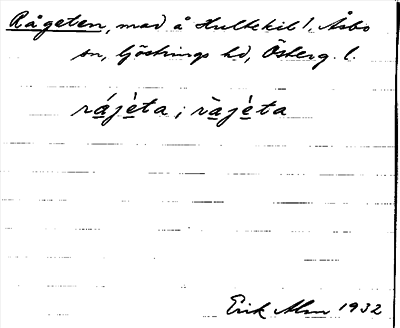 Rågeten, mad å Hultekil 1, Åsbo
sn, Göstrings hd, Österg. l.
rájèta; ràjèta
Erik Alm 1932